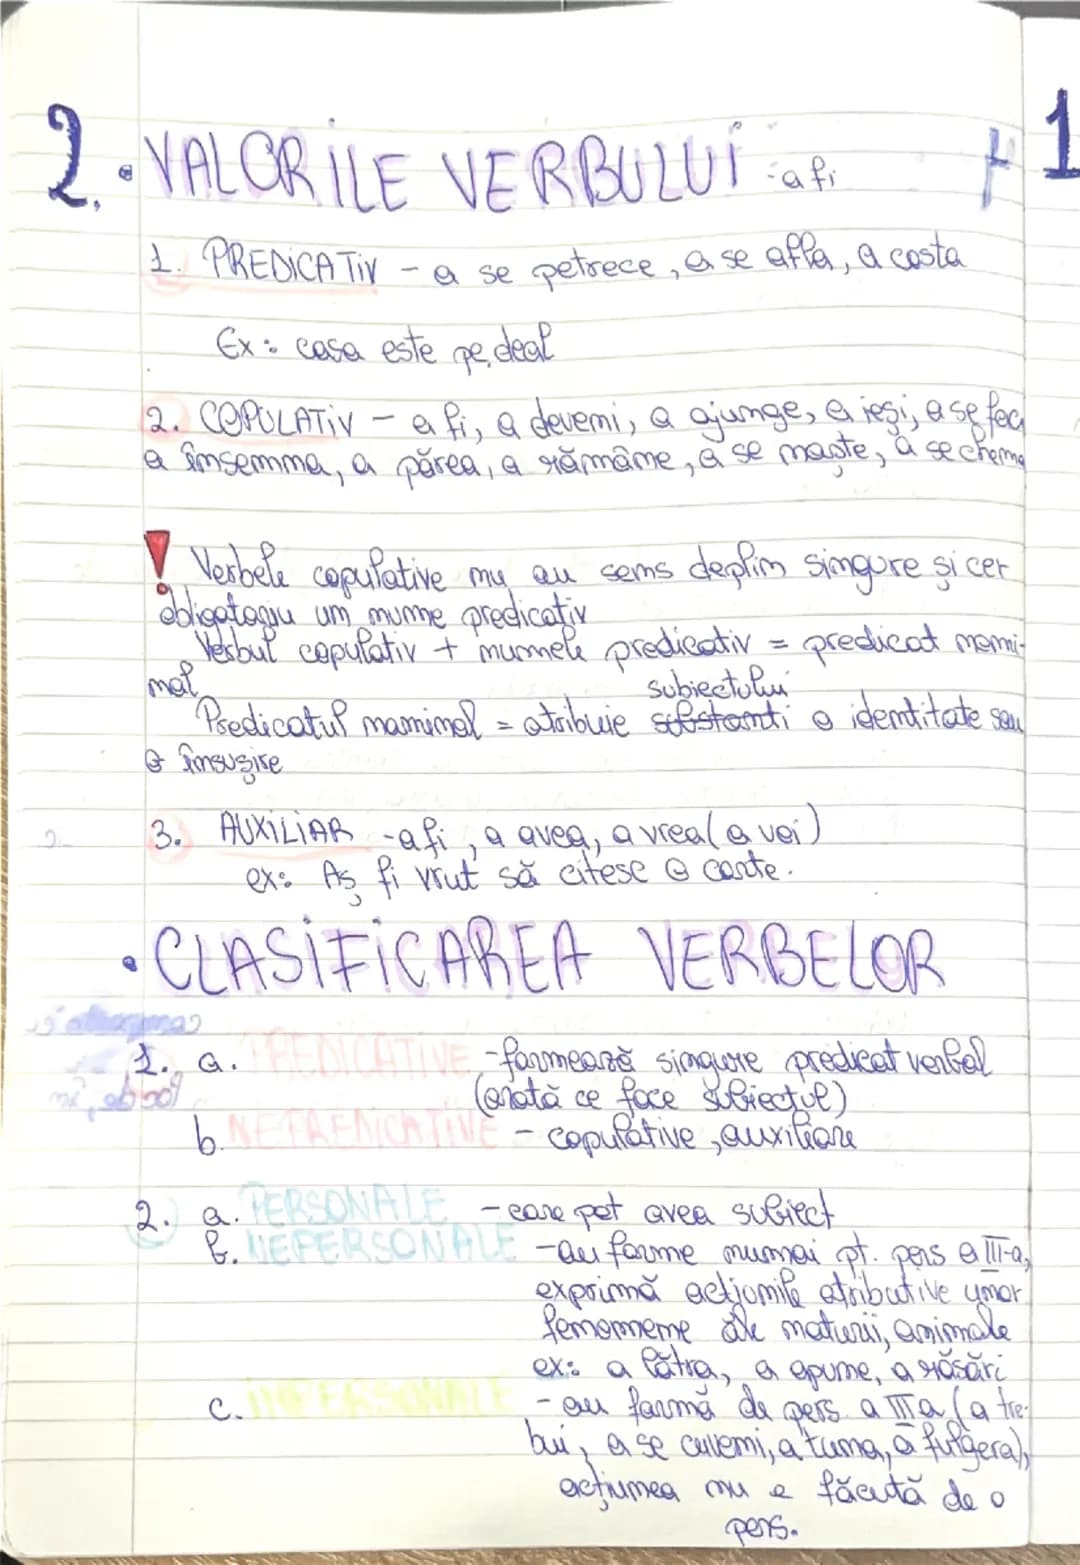 2. • VALORILE VERBULUI - a fi
1
1. PREDICATIV - a se petrece, a se afla, a costa
Ex: casa este pe deal
2. COPULATIV - a fi, a deveni, a ajunge, a ieși, a se fac
a însemna, a părea, a rămâne, a se naște, a se chema
! Verbele copulative nu au sens deplin singure și cer
obligatoriu un nume predicativ
Verbul copulativ + numele predicativ = predicat nomi-
nal
subiectului
Predicatul naminal = atribuie substanti o identitate sau
o însușire
3. AUXILIAR - a fi, a avea, a vrea (a voi)
ex: Aș fi vrut să citesc o carte.
• CLASIFICAREA VERBELOR
1. a. PREDICATIVE - formează singure predicat verbal
(arată ce face subiectul)
b. NEPREDICATIVE - copulative, auxiliare
2. a. PERSONALE - care pot avea subiect
b. NEPERSONALE - au forme numai pt. pers a III-a,
exprimă acțiunile atributive unor
fenomneme ale naturii, animale
ex: a lătra, a apune, a răsări
c. IMPERSONALE - au formă de pers. a III a (a tre-
bui, a se cuveni, a tuna, a fulgera),
acțiunea nu e făcută de o
pers.